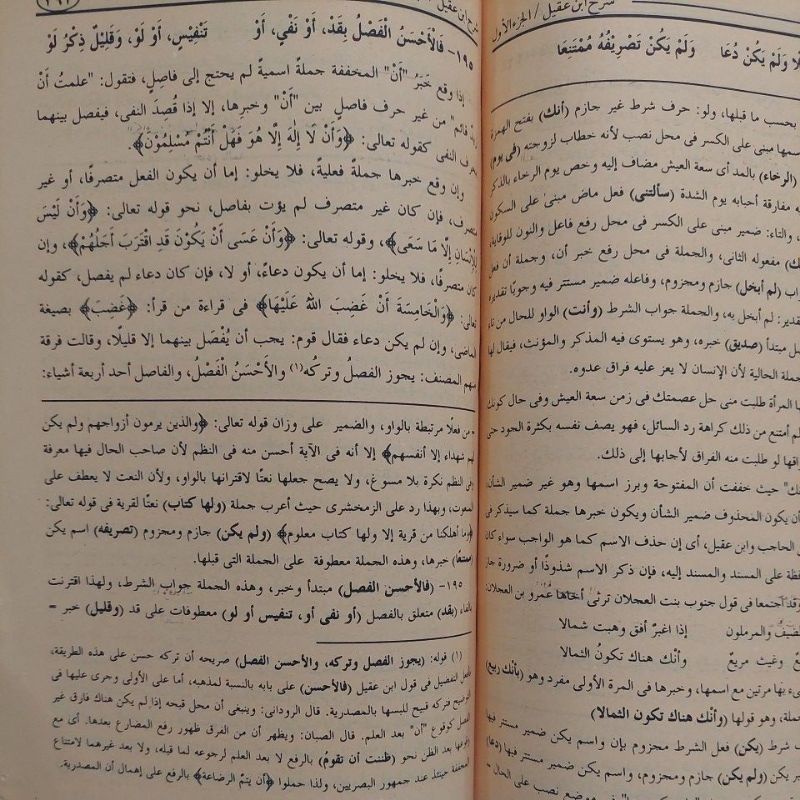 شرح ابن عقيل / الجزء الأول
لا ولم يكن دعا ولم يكن تصريفه ممتنعا
بحسب ما قبلها، ولو: حرف شرط غير جازم (أنك) بفتح الهمزة
اسمها مبنى على الكسر فى محل نصب لأنه خطاب لزوجته (فى يوم)
(الرخاء) بالمد أى سعة العيش مضاف إليه وخص يوم الرخاء بالذكر
مفارقة أحبابه يوم الشدة (سألتنى) فعل ماض مبنى على السكون
والتاء: ضمير مبنى على الكسر فى محل رفع فاعل والنون للوقاية
مفعوله الثانى، والجملة فى محل رفع خبر أن، وجملة أن فعل
(لم أبخل) جازم ومجزوم، وفاعله ضمير مستتر فيه وجوبًا تقديره
لم أبخل به، والجملة جواب الشرط (وأنت) الواو للحال من تاء
مبتدأ (صديق) خبره، وهو يستوى فيه المذكر والمؤنث، فيقال لها
الحالية لأن الإنسان لا يعز عليه فراق عدوه.
المرأة طلبت منى حل عصمتك فى زمن سعة العيش وفى حال كونك
لم أمتنع من ذلك كراهة رد السائل، فهو يصف نفسه بكثرة الجود حتى
لو طلبت منه الفراق لأجابها إلى ذلك.
حيث خففت أن المفتوحة وبرز اسمها وهو غير ضمير الشأن
أن يكون المحذوف ضمير الشأن ويكون خبرها جملة كما سيذكر فى
الحاجب وابن عقيل، أى إن حذف الاسم كما هو الواجب سواء كان
على المسند والمسند إليه، فإن ذكر الاسم شذوذًا أو ضرورة جاز
وقد اجتمعا فى قول جنوب بنت العجلان ترثى أخاها عمرو بن العجلان:
الضيف والمرملون إذا اغبر أفق وهبت شمالا
وغيث مريع وأنك هناك تكون الثمالا
مرتين مع اسمها، وخبرها فى المرة الأولى مفرد وهو (بأنك ربيع)
وهو قولها (وأنك هناك تكون الثمالا)
شرط (يكن) فعل الشرط مجزوم بإن واسم يكن ضمير مستتر فيها
يكن (ولم يكن) جازم ومجزوم، واسم يكن ضمير مستتر فيها (دعا)
فى موضع نصب على الحال
شرح ابن عقيل
١٩٥- فالأحسن الفصل بقد، أو نفي، أو تنفيس، أو لو، وقليل ذكر لو
إذا وقع خبر "أن" المخففة جملة اسمية لم يحتج إلى فاصل، فتقول: "علمت أن
زيد قائم" من غير حرف فاصل بين "أن" وخبرها، إلا إذا قصد النفى، فيفصل بينهما
بحرف النفى كقوله تعالى: ﴿وأن لا إله إلا هو فهل أنتم مسلمون﴾.
وإن وقع خبرها جملة فعلية، فلا يخلو: إما أن يكون الفعل متصرفًا، أو غير
متصرف، فإن كان غير متصرف لم يؤت بفاصل، نحو قوله تعالى: ﴿وأن ليس
للإنسان إلا ما سعى﴾، وقوله تعالى: ﴿وأن عسى أن يكون قد اقترب أجلهم﴾، وإن
كان متصرفًا، فلا يخلو: إما أن يكون دعاءً، أو لا، فإن كان دعاء لم يفصل، كقوله
تعالى: ﴿والخامسة أن غضب الله عليها﴾ فى قراءة من قرأ: ﴿غضب﴾ بصيغة
الماضى، وإن لم يكن دعاء فقال قوم: يجب أن يفصل بينهما إلا قليلًا، وقالت فرقة
منهم المصنف: يجوز الفصل وتركه(١) والأحسن الفصل، والفاصل أحد أربعة أشياء:
= من فعلًا مرتبطة بالواو، والضمير على وزان قوله تعالى: ﴿والذين يرمون أزواجهم ولم يكن
لهم شهداء إلا أنفسهم﴾ إلا أنه فى الآية أحسن منه فى النظم لأن صاحب الحال فيها معرفة
وفى النظم نكرة بلا مسوغ، ولا يصح جعلها نعتًا لاقترانها بالواو، ولأن النعت لا يعطف على
المنعوت، وبهذا رد على الزمخشرى حيث أعرب جملة (ولها كتاب) نعتًا لقرية فى قوله تعالى:
﴿وما أهلكنا من قرية إلا ولها كتاب معلوم﴾ (ولم يكن) جازم ومجزوم (تصريفه) اسم يكن
(ممتنعا) خبرها، وهذه الجملة معطوفة على الجملة التى قبلها.
١٩٥- (فالأحسن الفصل) مبتدأ وخبر، وهذه الجملة جواب الشرط، ولهذا اقترنت
بالفاء (بقد) متعلق بالفصل (أو نفى أو، تنفيس أو لو) معطوفات على قد (وقليل) خبر =
(١) قوله: (يجوز الفصل وتركه، والأحسن الفصل) صريحه أن تركه حسن على هذه الطريقة،
فأفعل التفضيل فى قول ابن عقيل (فالأحسن) على بابه بالنسبة لمذهبه، أما على الأولى وجرى عليها فى
التوضيح فتركه قبيح للبسها بالمصدرية. قال الرودانى: وينبغى أن محل قبحه إذا لم يكن هناك فارق غير
الفصل كوقوع "أن" بعد العلم. قال الصبان: ويظهر أن من الفرق ظهور رفع المضارع بعدها. أى مع
وقوعها بعد الظن نحو (ظننت أن تقوم) بالرفع لا بعد العلم لرجوعه لما قبله، ولا بعد غيرهما لامتناع
المخففة حينئذ عند جمهور البصريين، ولذا حملوا ﴿أن يتم الرضاعة﴾ بالرفع على إهمال أن المصدرية.